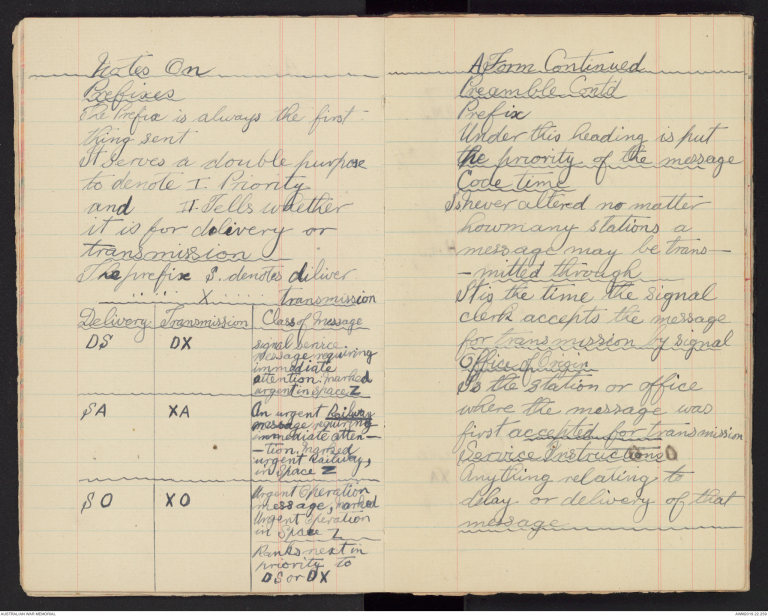 Notes On
Prefixes
The Prefix is always the first
thing sent
It serves a double purpose
to denote I. Priority
and II Tells whether
it is for delivery or
transmission
The prefix S. denotes diliver
" " " X " " transmission
Delivery Transmission Class of Message
DS DX signal service
message requiring
immediate
attention marked
urgent in space Z
SA XA An urgent Railway
message requiring
immediate atten-
-tion. marked
urgent Railway,
in Space Z
SO XO Urgent Operation
message, marked
Urgent operation
in Space Z
Ranks next in
priority to
DS or DX
A Form Continued
Preamble Contd
Prefix
Under this heading is put
the priority of the message
Code time
Is never altered no matter
howmany stations a
message may be trans-
-mitted through
It is the time the signal
clerk accepts the message
for transmission by signal
Office of Origin
Is the station or office
where the message was
first accepted for transmission
Service Instructions
Anything relating to
delay or delivery of that
message
AUSTRALIAN WAR MEMORIAL